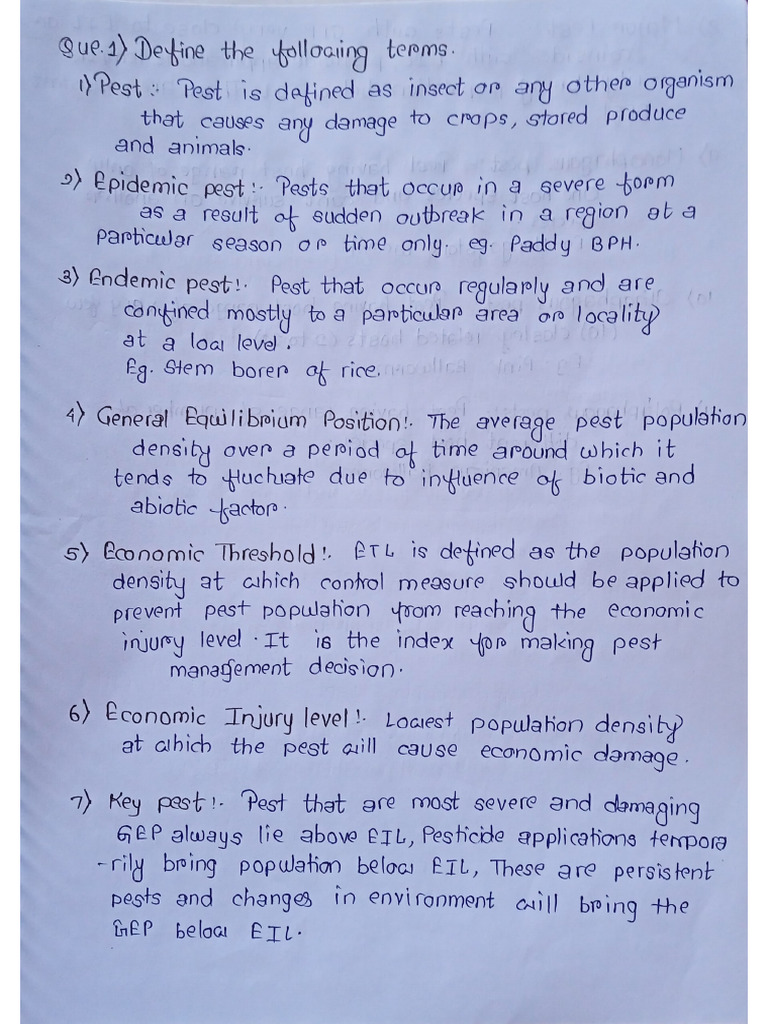 Que.1) Define the following terms.
1) Pest :- Pest is defined as insect or any other organism
that causes any damage to crops, stored produce
and animals.
2) Epidemic pest :- Pests that occur in a severe form
as a result of sudden outbreak in a region at a
particular season or time only. eg. Paddy BPH.
3) Endemic pest :- Pest that occur regularly and are
confined mostly to a particular area or locality
at a loal level.
Eg. Stem borer of rice.
4) General Equilibrium Position :- The average pest population
density over a period of time around which it
tends to fluctuate due to influence of biotic and
abiotic factor.
5) Economic Threshold :- ETL is defined as the population
density at which control measure should be applied to
prevent pest population from reaching the economic
injury level. It is the index for making pest
management decision.
6) Economic Injury level :- Lowest population density
at which the pest will cause economic damage.
7) Key pest :- Pest that are most severe and damaging
GEP always lie above EIL, Pesticide applications tempora
-rily bring population below EIL, These are persistent
pests and changes in environment will bring the
GEP below EIL.